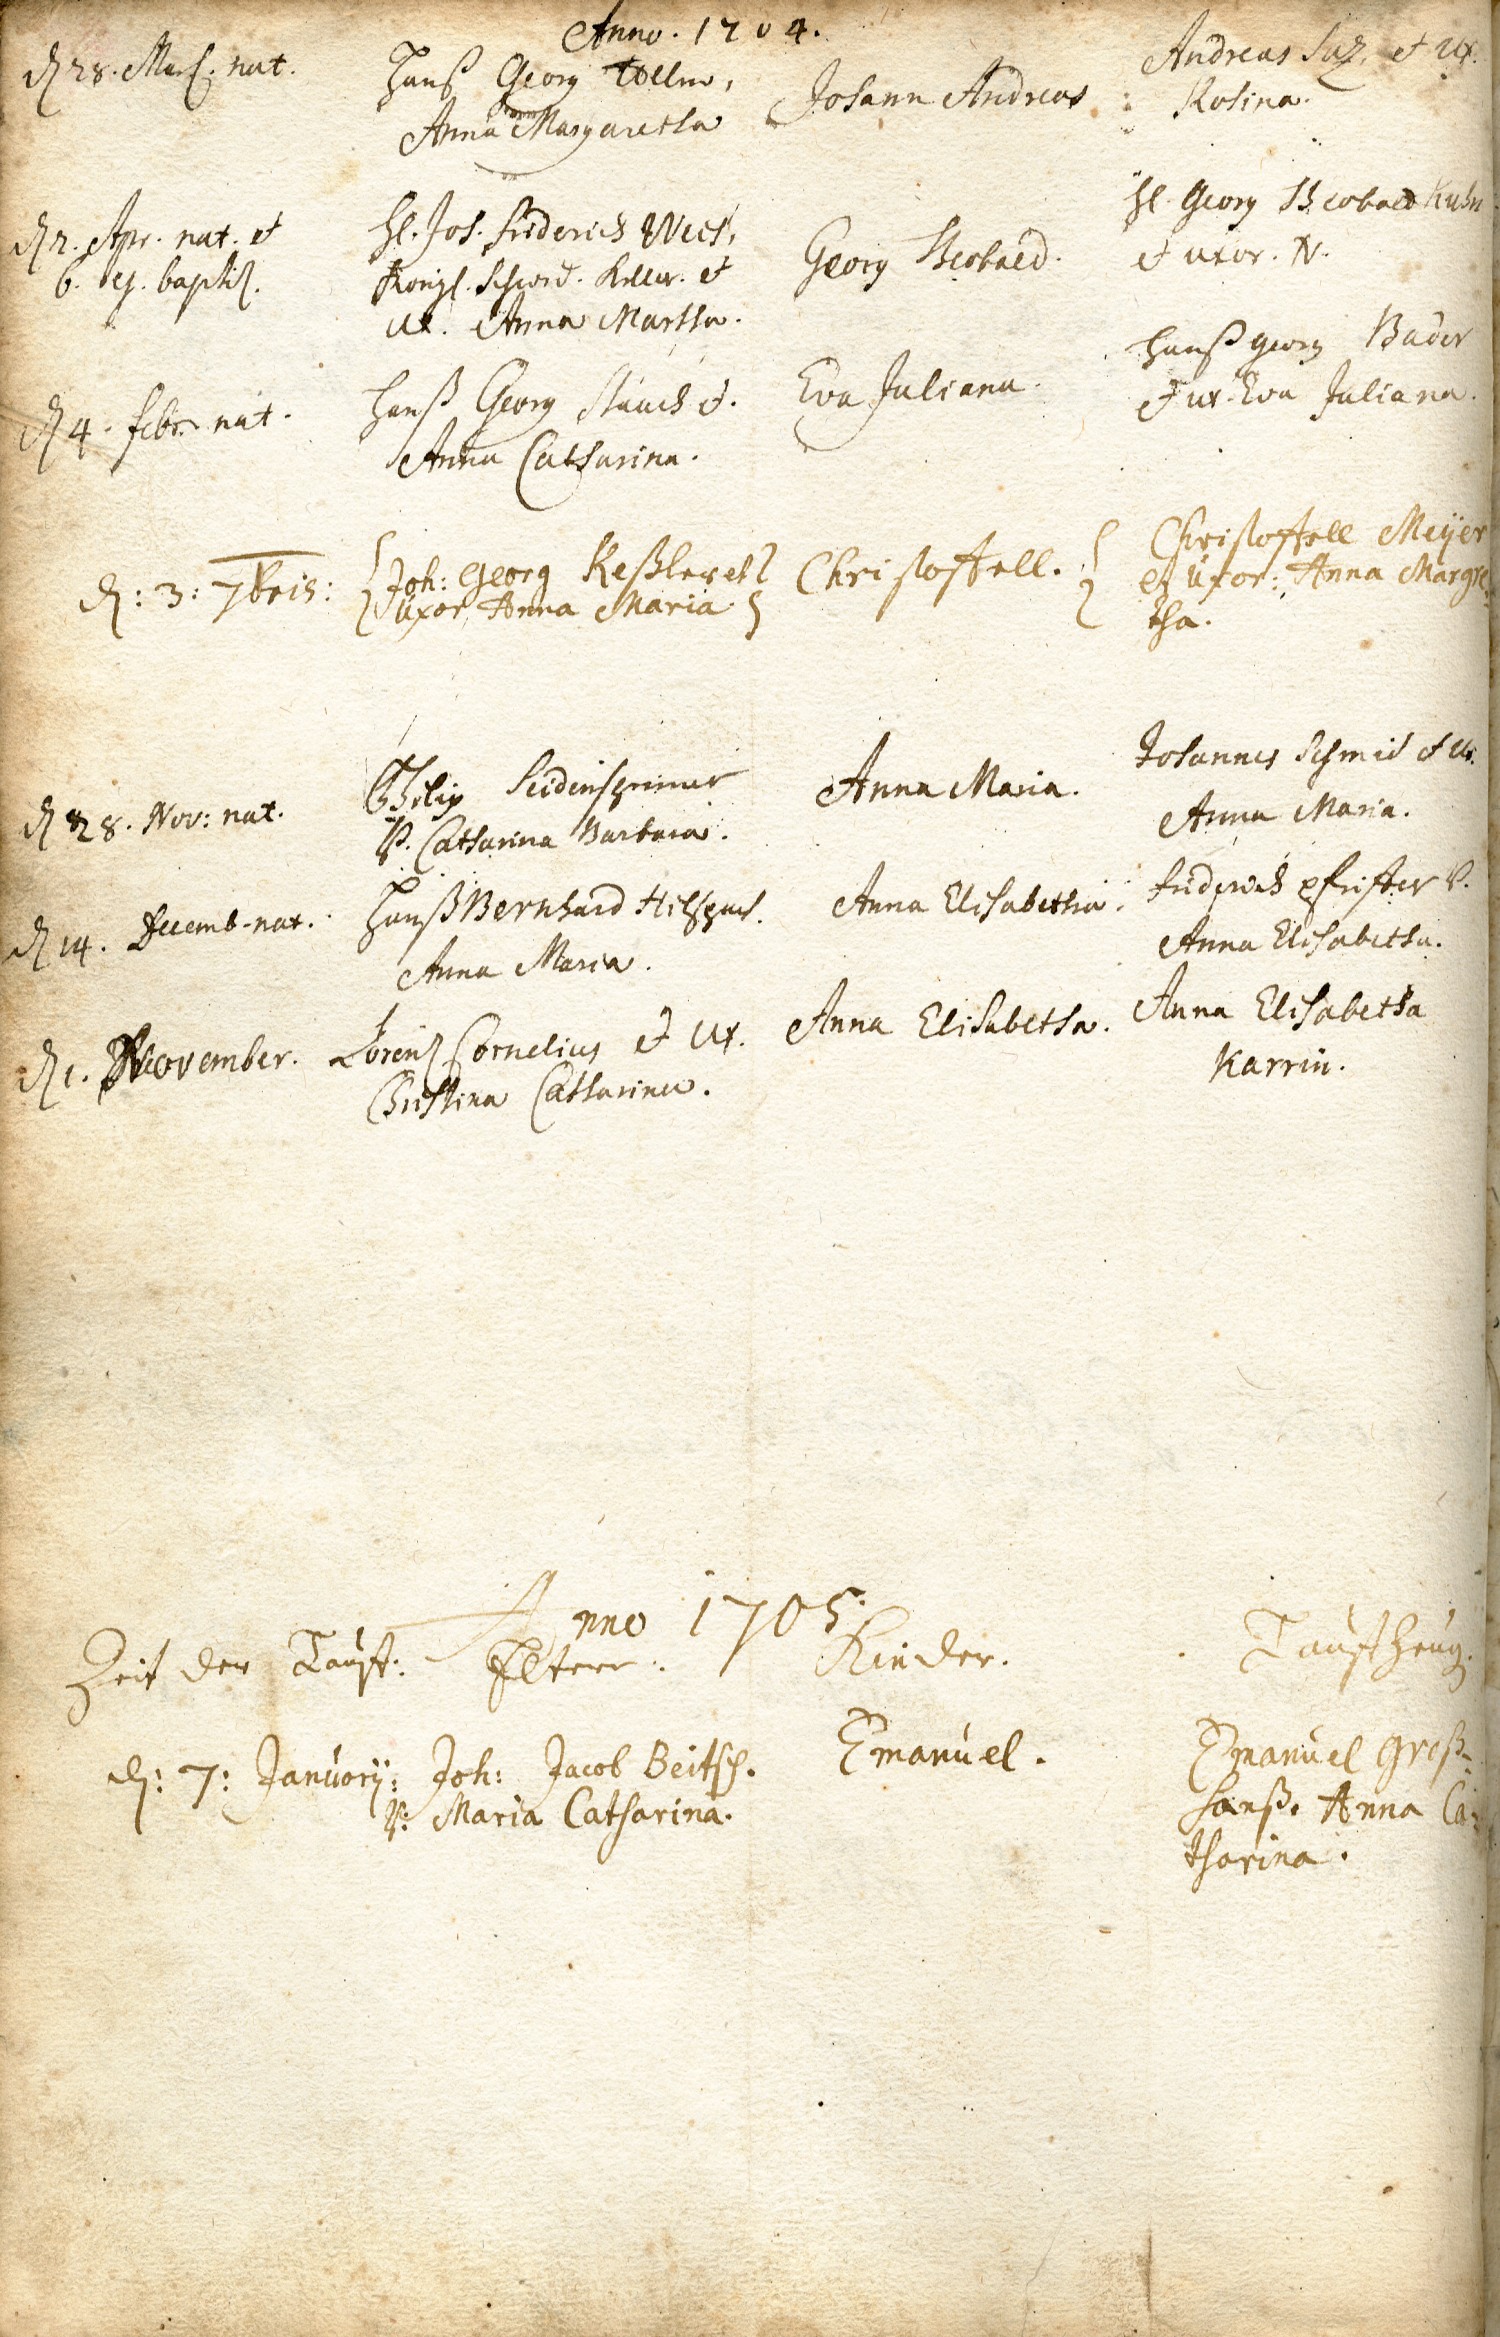 Anno. 1704.
d 28. Mart. nat.
Hanß Georg
Anna Margaretha
Johann Andreas
Andreas et Ux.
Rosina.
d 2. Apr. nat. et
6. ej. baptis.
Hl. Joh. Friderich
Königl. Schwed. et
Ux. Anna Martha.
Georg Theobald.
Hl. Georg Theobald Kuhn
et uxor. N.
d 4. febr nat.
Hanß Georg Stauch et.
Anna Catharina.
Eva Juliana.
Hanß Georg Bader
et ux. Eva Juliana.
d: 3: 7bris:
Joh: Georg Keßler et
üxor Anna Maria
Christoffell.
Christoffell Meÿer
et üxor: Anna Margre-
tha.
d 28. Nov: nat.
Philip Seidenspinner
V. Catharina Barbara.
Anna Maria.
Johannes Schmid et Ux.
Anna Maria.
d 14. Decemb. nat.
Hanß Bernhard
Anna Maria.
Anna Elisabetha.
Friderich Pfister V.
Anna Elisabetha.
d 1. November.
Lorentz Cornelius et Ux.
Christina Catharina.
Anna Elisabetha.
Anna Elisabetha
Karrin.
Anno 1705.
Zeit der Tauff: Eltern: Kinder. Tauffzeug.
d: 7: Januarÿ: Joh: Jacob Beitsch.
V: Maria Catharina.
Emanuel.
Emanuel Groß-
hanß. Anna Ca-
tharina.